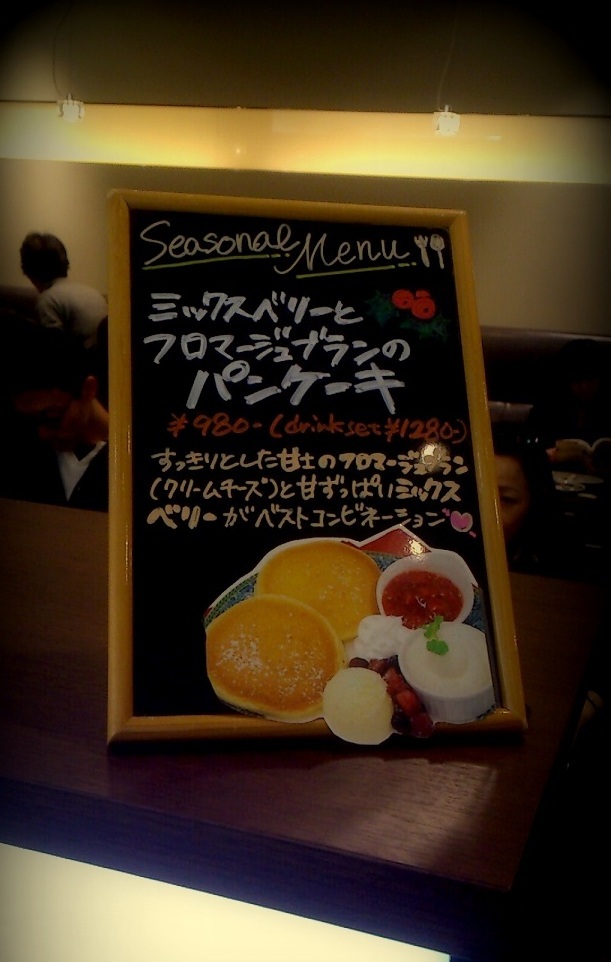 Seasonal Menu
ミックスベリーと
フロマージュブランの
パンケーキ
¥980-(drink set ¥1280-)
すっきりとした甘土のフロマージュブラン
(クリームチーズ)と甘ずっぱいミックス
ベリーがベストコンビネーション